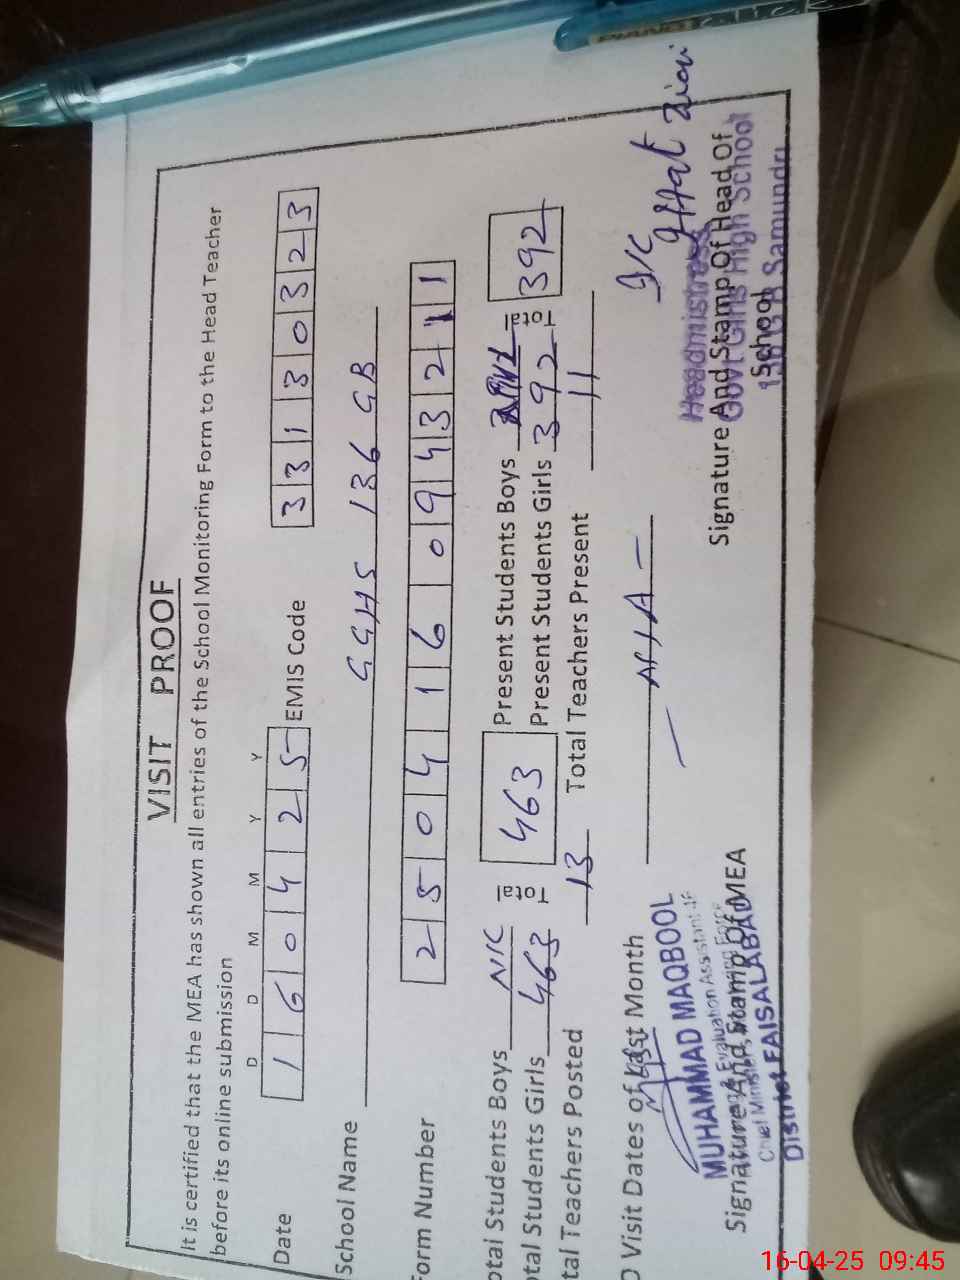 VISIT PROOF
It is certified that the MEA has shown all entries of the School Monitoring Form to the Head Teacher
before its online submission
D D M M Y Y
Date 1 6 0 4 2 5 EMIS Code 3 3 1 3 0 3 2 3
School Name GGHS 136 GB
Form Number 2 5 0 4 1 6 0 9 4 3 2 1 1
otal Students Boys Nil Total 463 Present Students Boys Total 392
otal Students Girls 463 Present Students Girls 392
tal Teachers Posted 13 Total Teachers Present 11
O Visit Dates of Last Month
I/C
MUHAMMAD MAQBOOL
Evaluation Assistant
Signature And Stamp Of MEA
Chief Minister's Monitoring Force
District FAISALABAD
Headmistress
Signature And Stamp Of Head Of
Govt Girls High School
School
136 G B Samundri
16-04-25 09:45